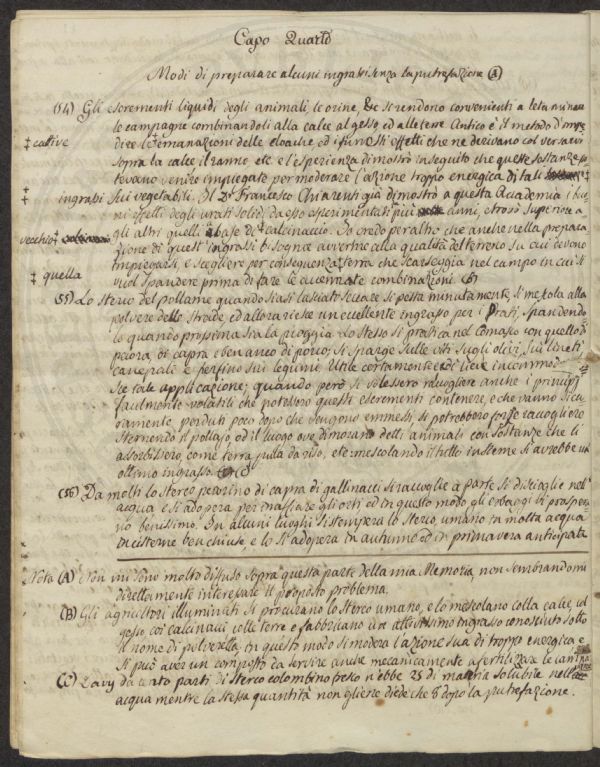 Capo Quarto
Modi di preparare alcuni ingrassi senza la putrefazione (A)
(54) Gli escrementi liquidi degli animali, le orine, &c si rendono convenienti a letaminare
le campagne combinandoli alla calce al gesso, ed alle terre. Antico è il metodo d'impe
‡ cattive
dire le ‡ emanazioni delle cloache, ed i funesti effetti che ne derivano col versarvi
sopra la calce il ranno etc. e l'esperienza dimostrò in seguito che queste sostanze po
tevano venire impiegate per moderare l'azione troppo energica di tali
‡ ingrassi
sui vegetabili. Il Dr Francesco Chiarenti già dimostrò a questa Accademia i buo
ni effetti degli urati solidi da esso esperimentati più anni, e trovò superiore a
gli altri quelli a base di ‡ calcinaccio. Io credo peraltro che anche nella prepara
vecchio ‡
zione di quest'ingrassi bisogna avvertire alla qualità del terreno su cui devono
impiegarsi, e scegliere per conseguenza ‡ terra che scarseggia nel campo in cui si
‡ quella
vuol spandere prima di fare le accennate combinazioni. (B)
(55) Lo sterco del pollame quando siasi lasciato seccare si pesta minutamente, si mescola alla
polvere delle strade, ed allora riesce un eccellente ingrasso per i Prati, spandendo
lo quando prossima sia la pioggia. Lo stesso si pratica nel Comasco con quello di
pecora, di capra e ben anco di porco; si sparge sulle viti sugli olivi, sui lineti,
canepali e perfino sui legumi. Utile certamente
sie tale applicazione; quando però si volessero raccogliere anche i principj
facilmente volatili che potevero questi escrementi contenere, e che vanno sicu
ramente perduti poco dopo che vengono emmessi, si potrebbero forse raccogliere
sternendo il pollajo, od il luogo ove dimorano detti animali con sostanze che li
assorbissero, come terra, pulla da riso, etc. mescolando il tutto insieme si avrebbe un
ottimo ingrasso. (C)
(56) Da molti lo sterco pecorino di capra di gallinacci si raccoglie a parte si discioglie nell'
acqua e si adopera per inaffiare gli orti ed in questo modo gli erbaggi vi prospera
no benissimo. In alcuni luoghi si stempera lo sterco umano in molta acqua
in cisterne ben chiuse e lo si adopera in autunno od in primavera anticipata
Nota (A) Non mi sono molto diffuso sopra questa parte della mia Memoria, non sembrandomi
direttamente interessare il proposto problema.
(B) Gli agricoltori illuminati si procurano lo sterco umano, e lo mescolano colla calce, col
gesso coi calcinacci colle terre e fabbricano un attivissimo ingrasso conosciuto sotto
il nome di polveretta, in questo modo si modera l'azione sua di troppo energica e
si può aver un composto da servire anche mecanicamente a fertilizzare le campagne
(C) Davy da cento parti di sterco colombino fresco n'ebbe 23 di materia solubile nell'
acqua mentre la stessa quantità non gliene diede che 8 dopo la putrefazione.